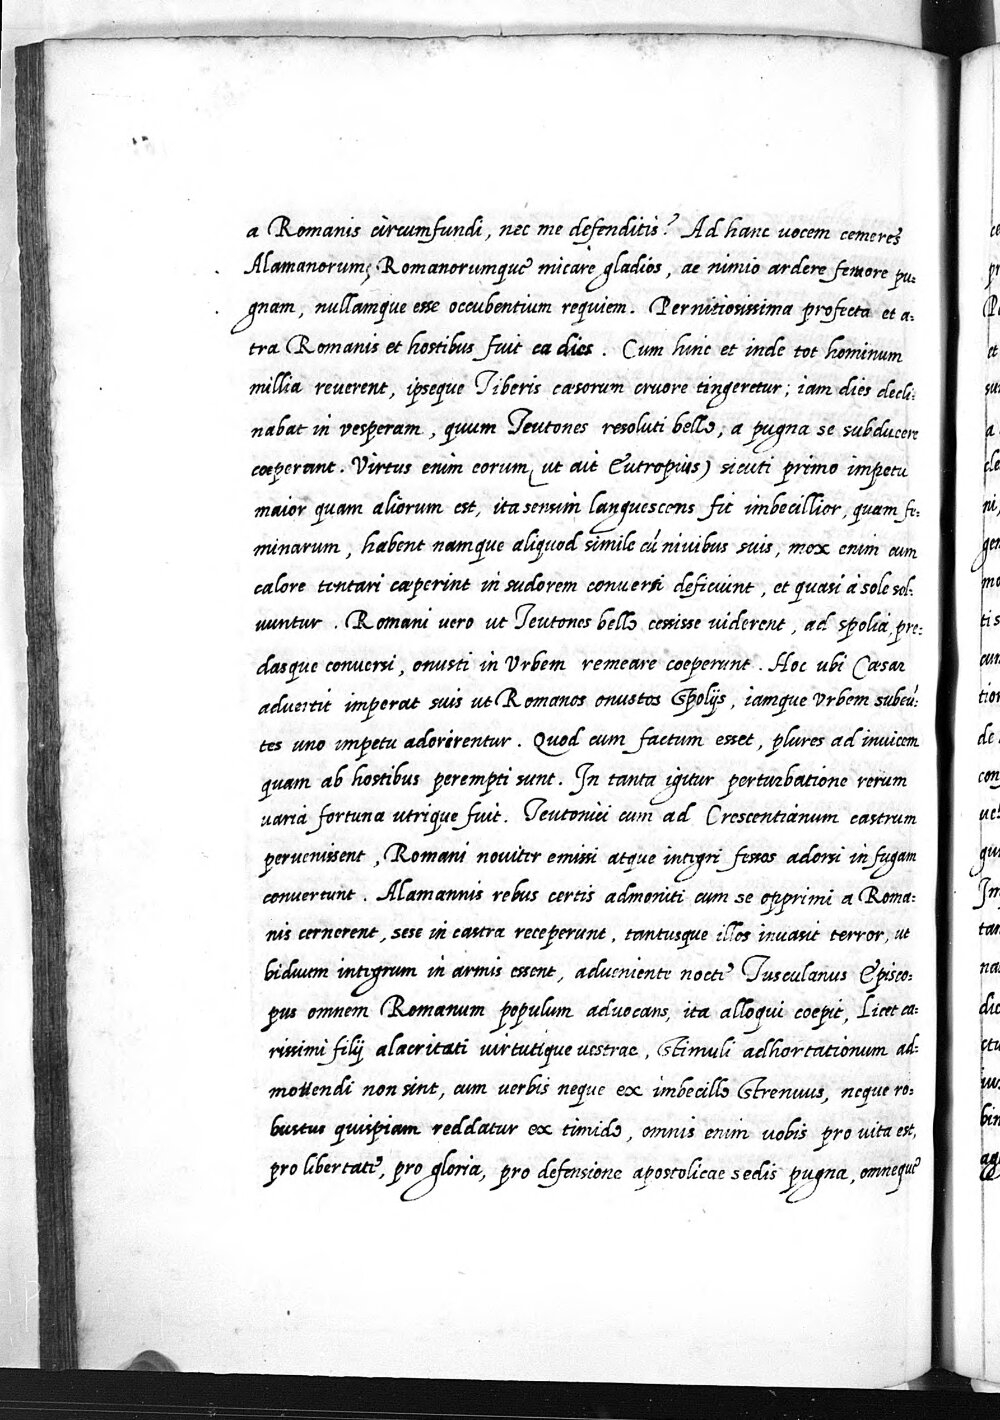 a Romanis circumfundi, nec me defenditis? Ad hanc uocem cerneres
Alamanorum, Romanorumque micare gladios, ac nimio ardere feruore pu:
gnam, nullamque esse occubentium requiem. Pernitiosissima profecta et a:
tra Romanis et hostibus fuit ea dies. Cum hinc et inde tot hominum
millia reuerent, ipseque Tiberis cæsorum cruore tingeretur; iam dies decli:
nabat in vesperam, quum Teutones resoluti bello, a pugna se subducere
cœperant. Virtus enim eorum, ut ait Eutropius) sicuti primo impetu
maior quam aliorum est, ita sensim languescens fit imbecillior, quam fe:
minarum, habent namque aliquod simile cū niuibus suis, mox enim cum
calore tentari cæperint in sudorem conuersi deficiunt, et quasi à sole sol:
uuntur. Romani uero ut Teutones bello cessisse uiderent, ad spolia, pre:
dasque conuersi, onusti in Vrbem remeare coeperunt. Hoc ubi Cæsar
aduertit imperat suis ut Romanos onustos spolijs, iamque Vrbem subeū:
tes uno impetu adorirentur. Quod cum factum esset, plures ad inuicem
quam ab hostibus perempti sunt. In tanta igitur perturbatione rerum
uaria fortuna utrique fuit. Teutonici cum ad Crescentianum castrum
peruenissent, Romani nouiter emissi atque intigri fessos adorsi in fugam
conuertunt. Alamannis rebus certis admoniti cum se opprimi a Roma:
nis cernerent, sese in castra receperunt, tantusque illos inuasit terror, ut
biduum intigrum in armis essent, adueniente nocte Tusculanus Episco:
pus omnem Romanum populum aduocans, ita alloqui coepit, Licet ca:
rissimi filij alacritati uirtutique uestrae, stimuli adhortationum ad:
mouendi non sint, cum uerbis neque ex imbecillo strenuus, neque ro:
bustus quispiam reddatur ex timido, omnis enim uobis pro uita est,
pro libertate, pro gloria, pro defensione apostolicae sedis pugna, omneque